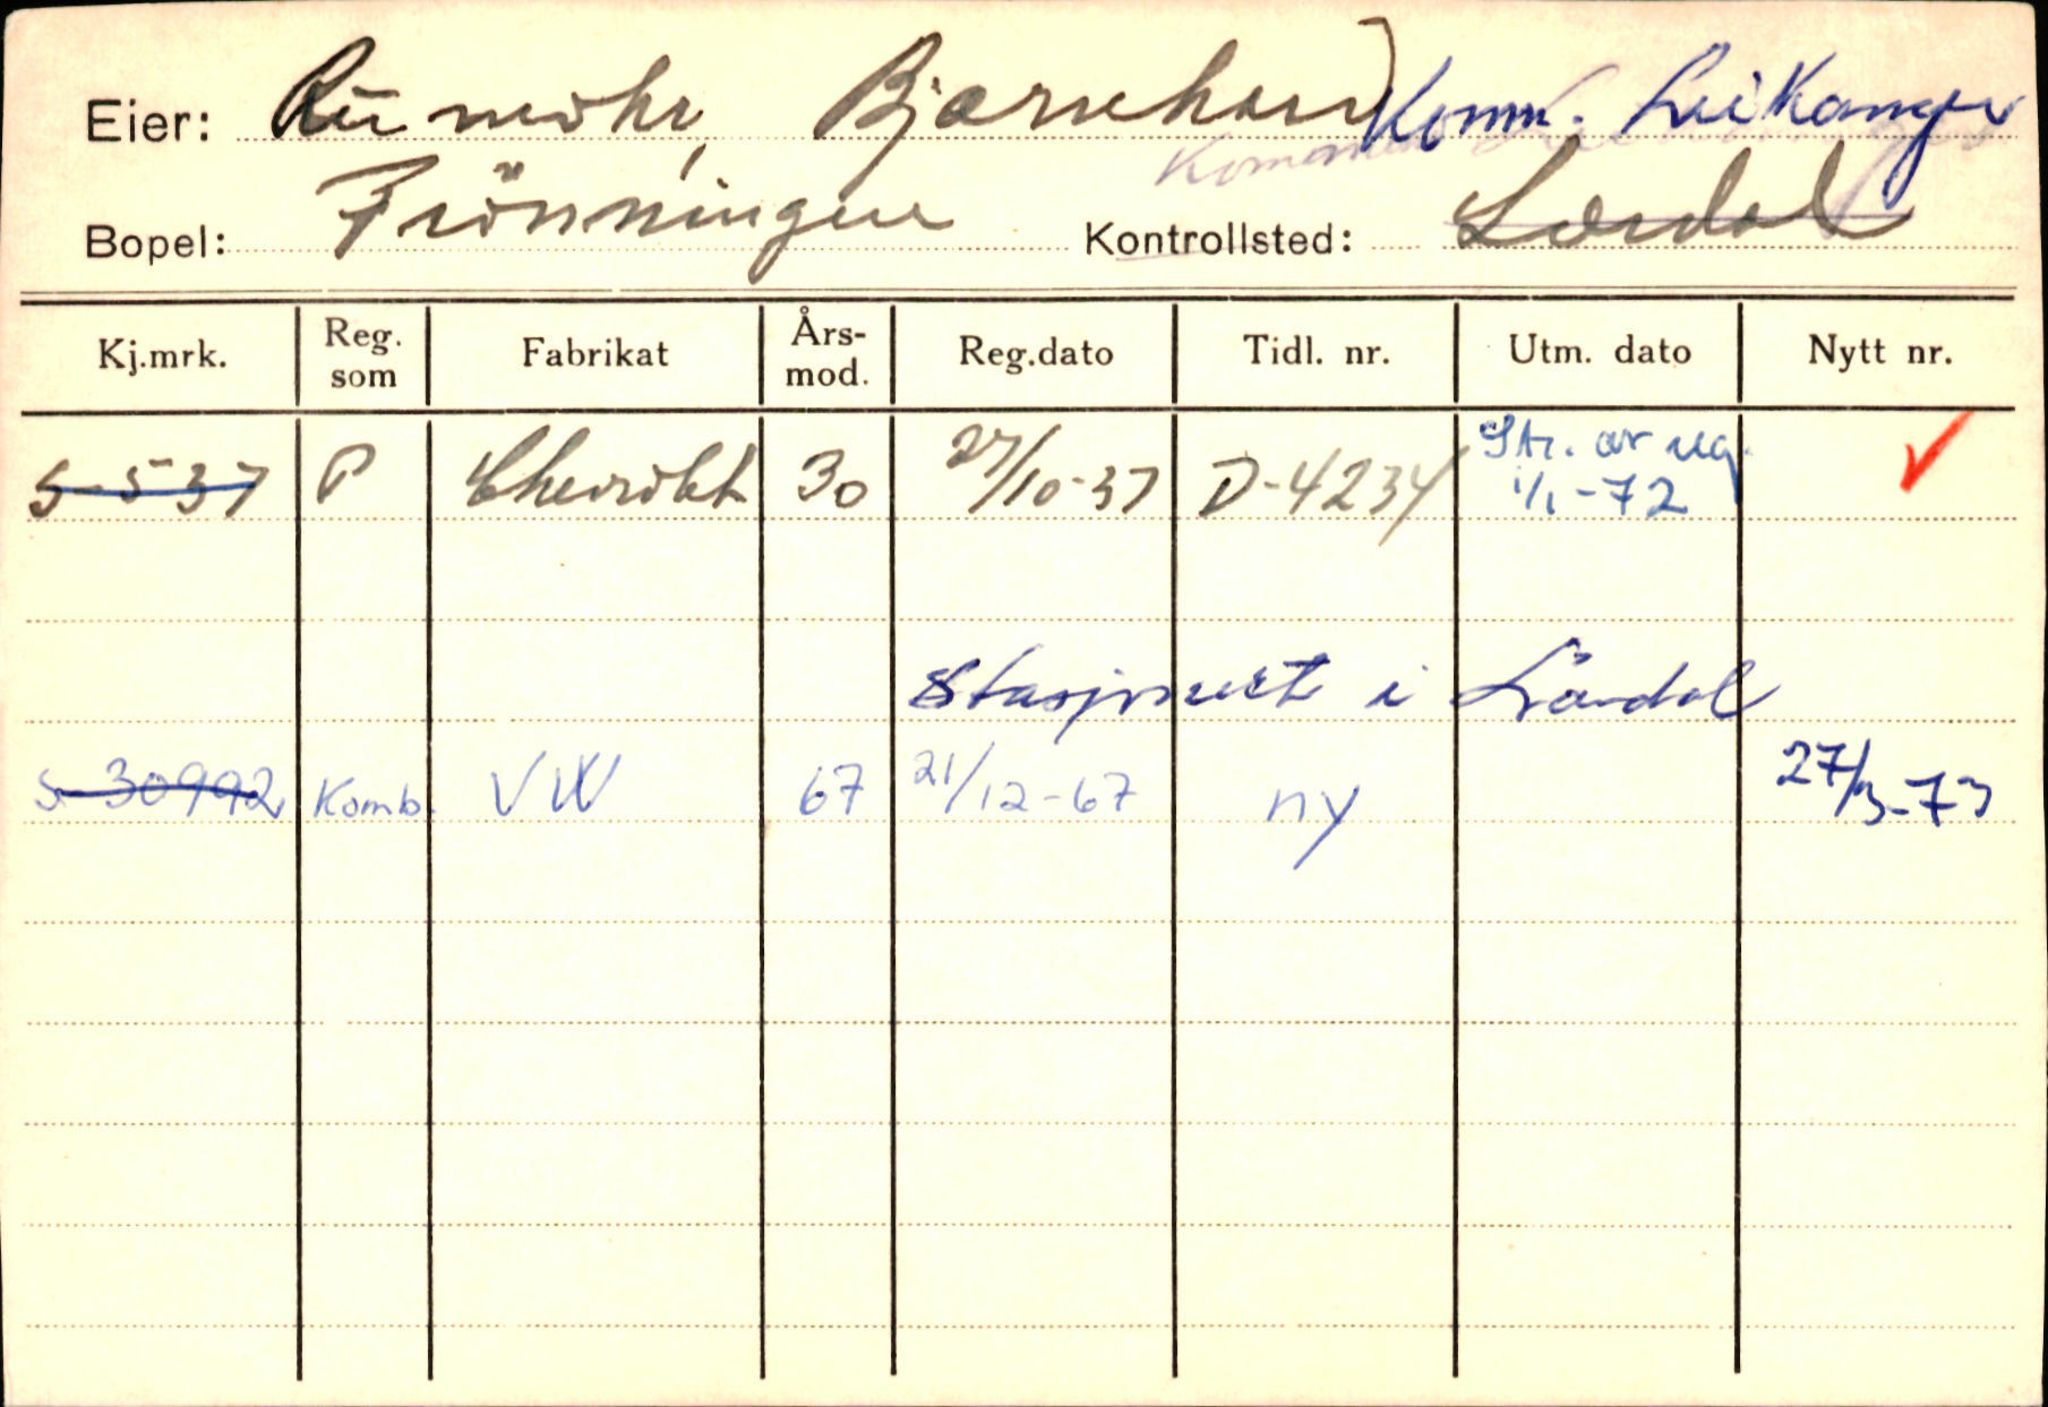 Eier: Rumohr, Bjarnehard Komm. Leikanger
Bopel: Frönningen Kontrollsted: Lærdal
Kj.mrk. Reg. som Fabrikat Års-mod. Reg.dato Tidl. nr. Utm. dato Nytt nr.
S-537 P Chevrolet 30 27/10-37 D-4234 Str. av reg. 1/1-72 ✓
Stasjonert i Lærdal
S-30992 Komb. VW 67 21/12-67 ny 27/3-73